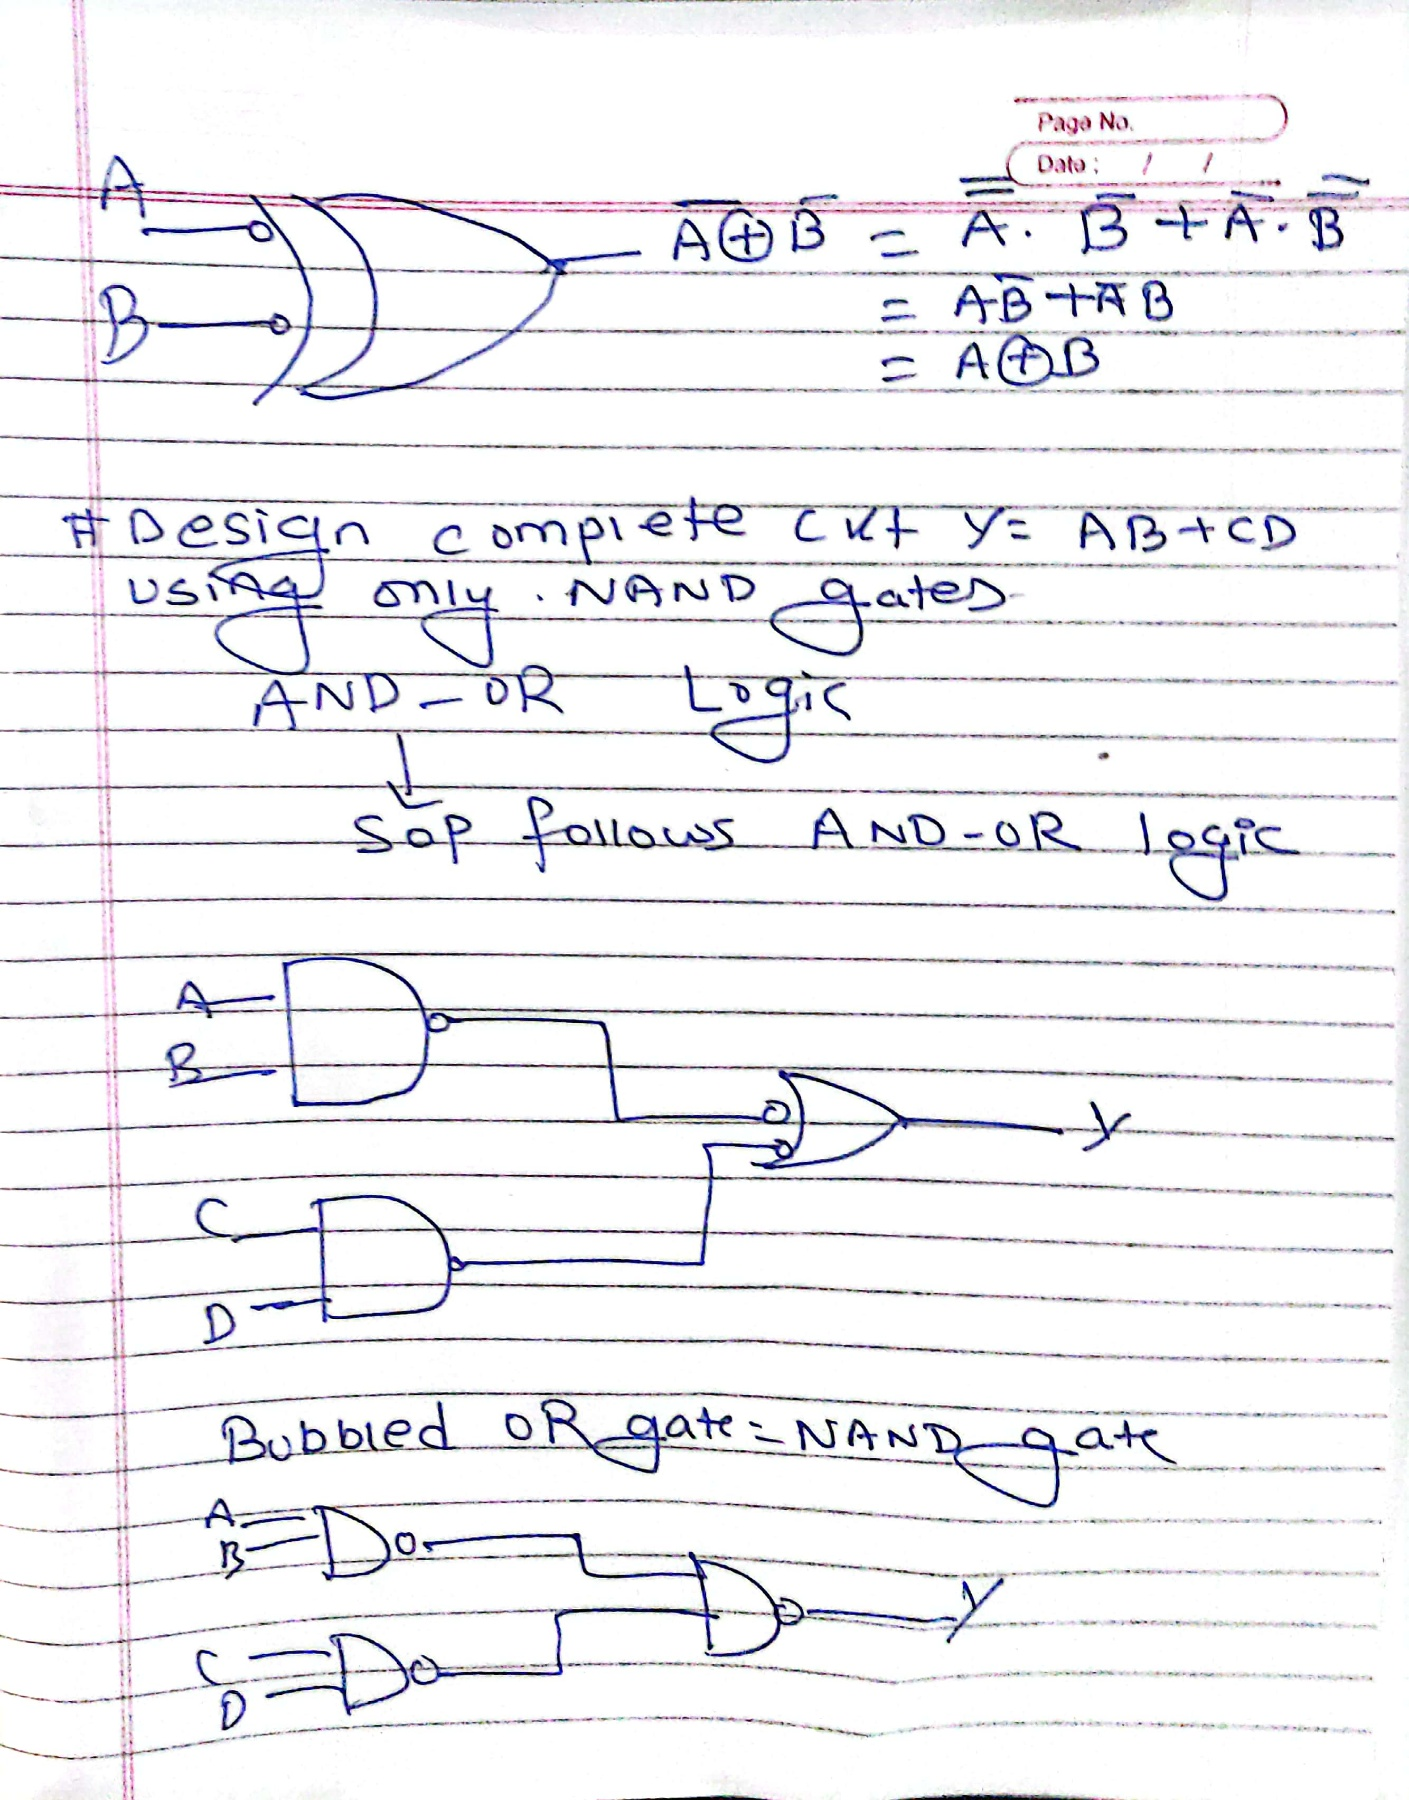 Page No.
Date: / /
A
B
A̅ ⊕ B̅ = A̿ . B̅ + A̅ . B̿
= AB̅ + A̅B
= A⊕B
# Design complete ckt Y = AB + CD
using only . NAND gates
AND - OR Logic
↓
SOP follows AND-OR logic
A
B
Y
C
D
Bubbled OR gate = NAND gate
A
B
Y
C
D